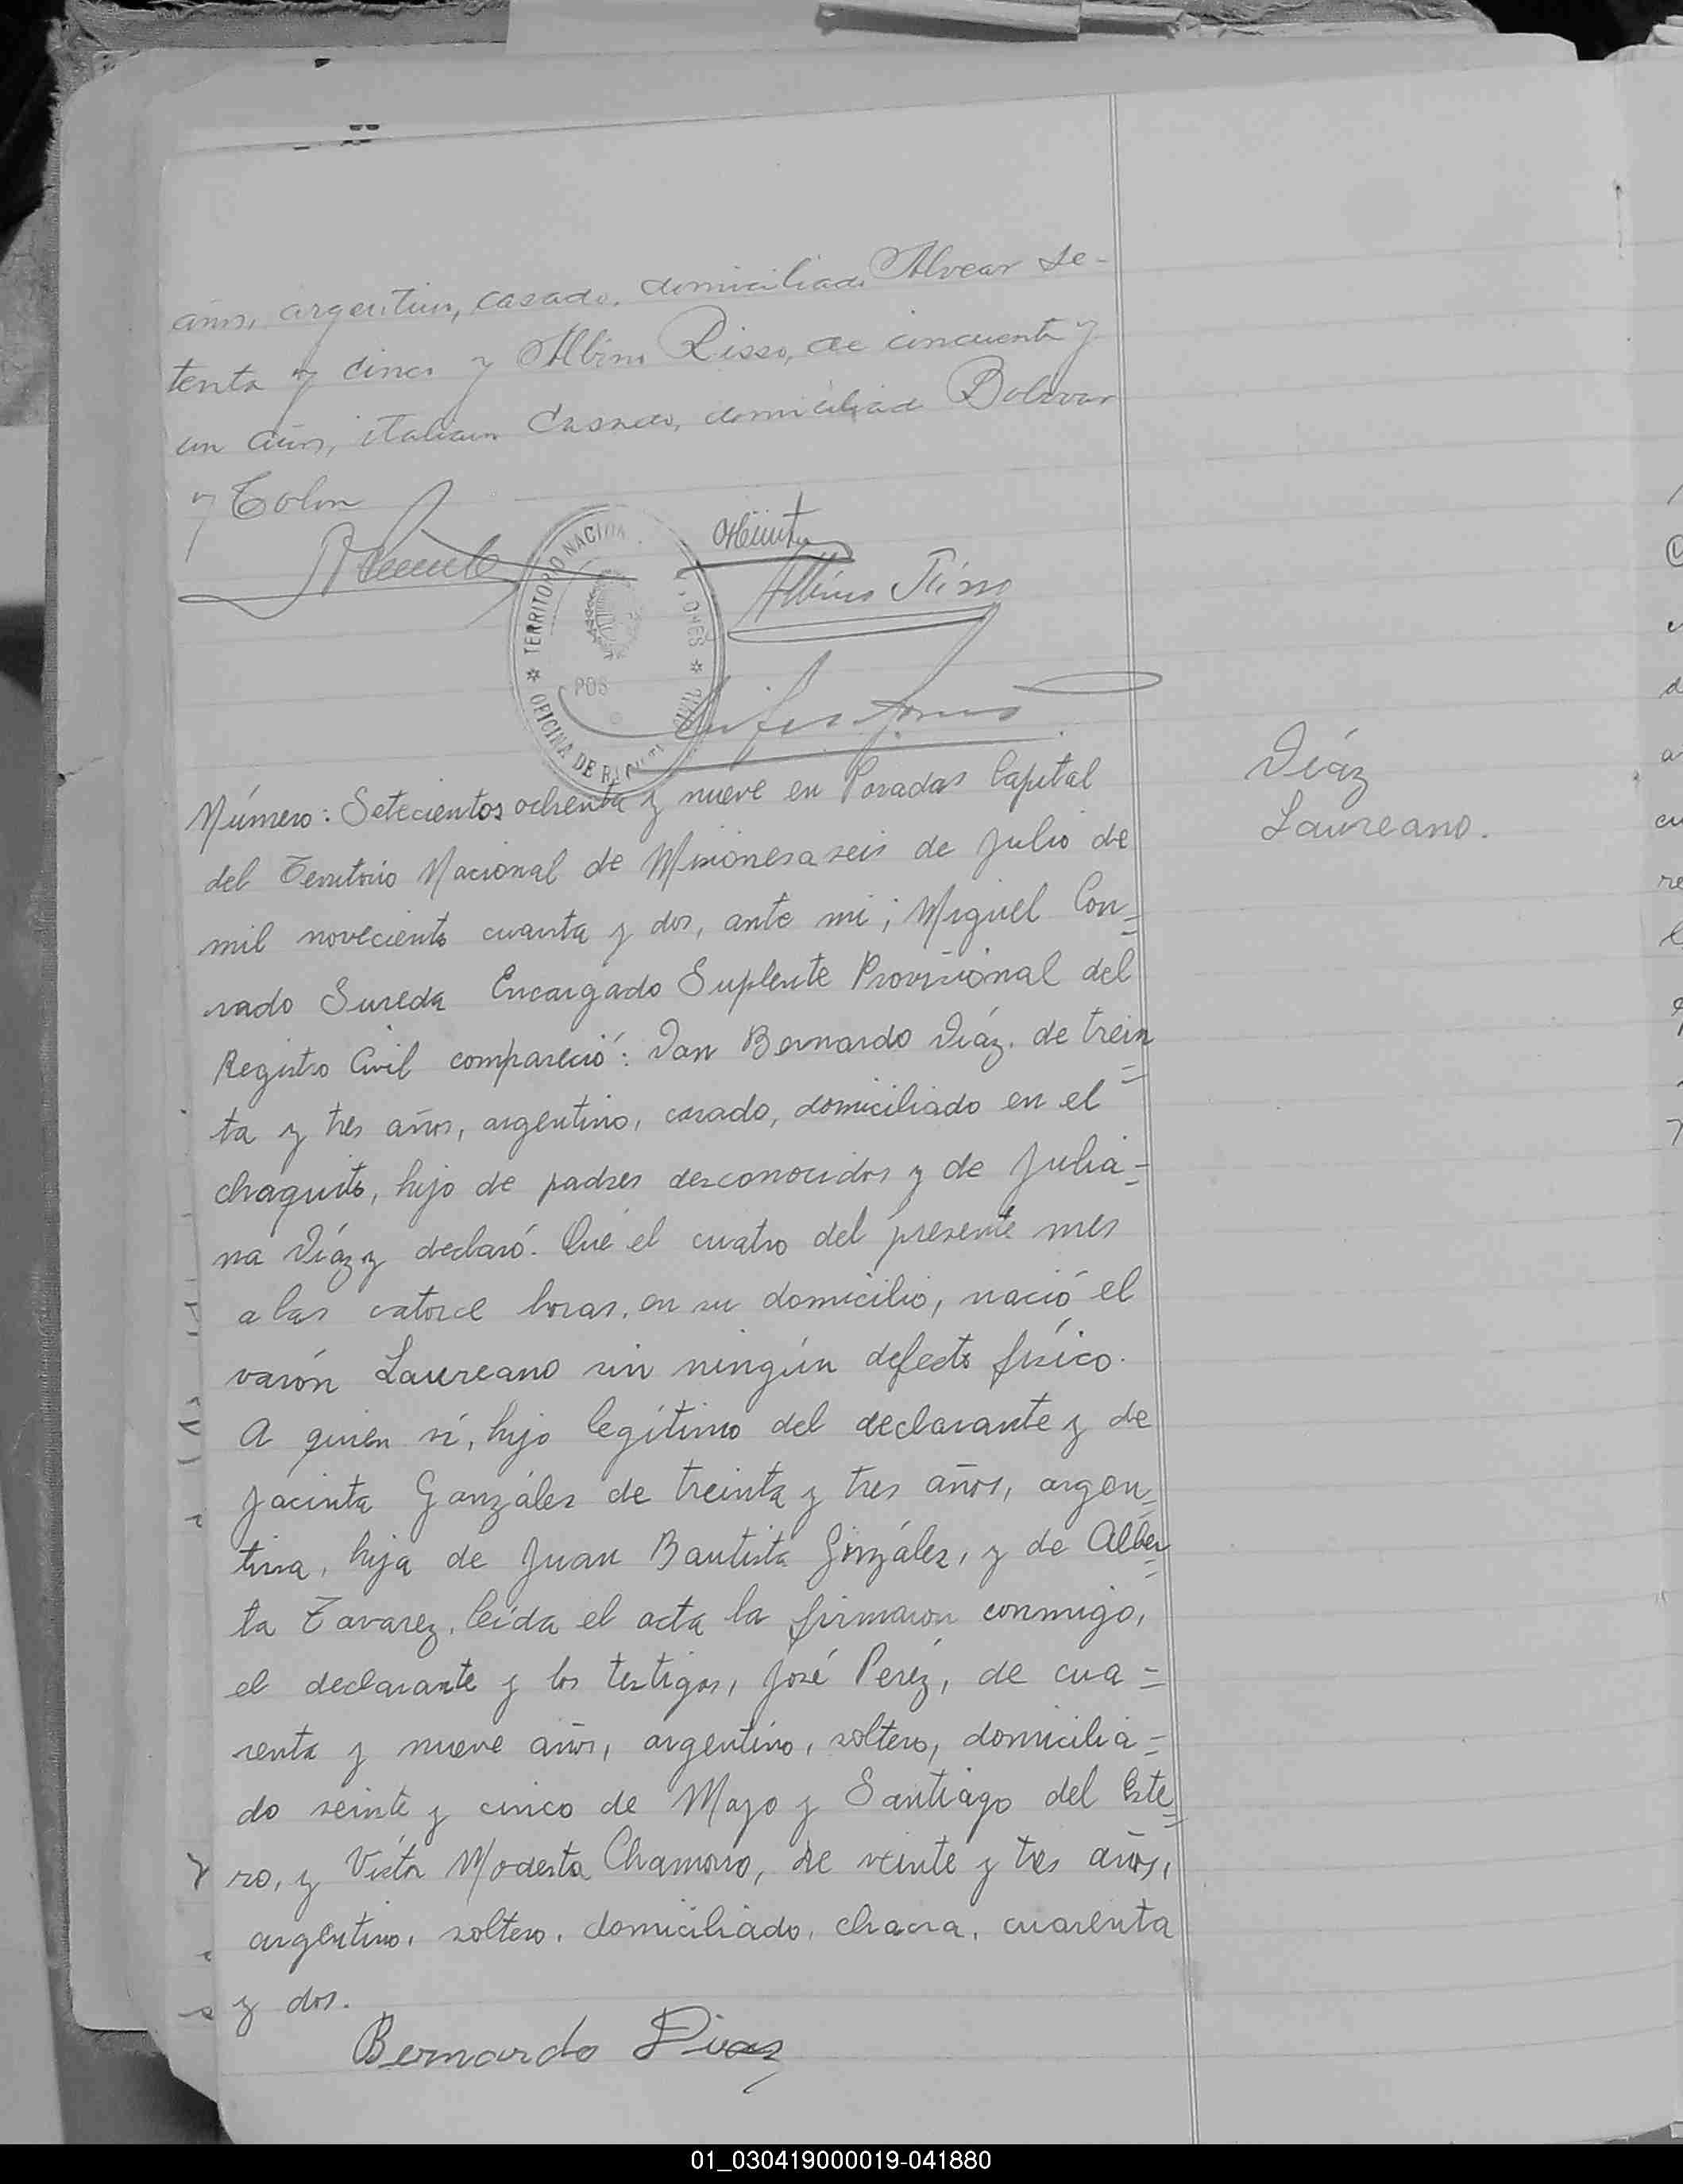 años, argentino, casado, domiciliado Alvear se-
tenta y cinco y Albino Risso, de cincuenta y
un años, italiano casado, domiciliado Bolivar
y Colon
TERRITORIO NACIONA
ONES
POS
OFICINA DE
CIVIL
Albino Risso
Número: Setecientos ochenta y nueve en Posadas Capital
del Territorio Nacional de Misiones a seis de Julio de
mil noveciento cuanta y dos, ante mi; Miguel Con=
rado Sureda Encargado Suplente Provisional del
Registro Civil compareció: Dan Bernardo Díaz. de trein=
ta y tres años, argentino, casado, domiciliado en el
chaquito, hijo de padres desconocidos y de Julia=
na Díaz y declaró. Que el cuatro del presente mes
a las catorce horas, en su domicilio, nació el
varón Laureano sin ningún defecto físico.
A quien ví, hijo legítimo del declarante y de
Jacinta Gonzáles de treinta y tres años, argen=
tina, hija de Juan Bautista Gonzáles, y de Alber=
ta Tavarez, leída el acta la firmaron conmigo,
el declarante y los testigos, José Peréz, de cua=
renta y nueve años, argentino, soltero, domicilia=
do veinte y cinco de Mayo y Santiago del Este=
ro, y Victor Modesto Chamorro, de veinte y tres años,
argentino, soltero, domiciliado, chacra, cuarenta
y dos.
Bernardo Diaz
Díaz
Laureano.
01_030419000019-041880